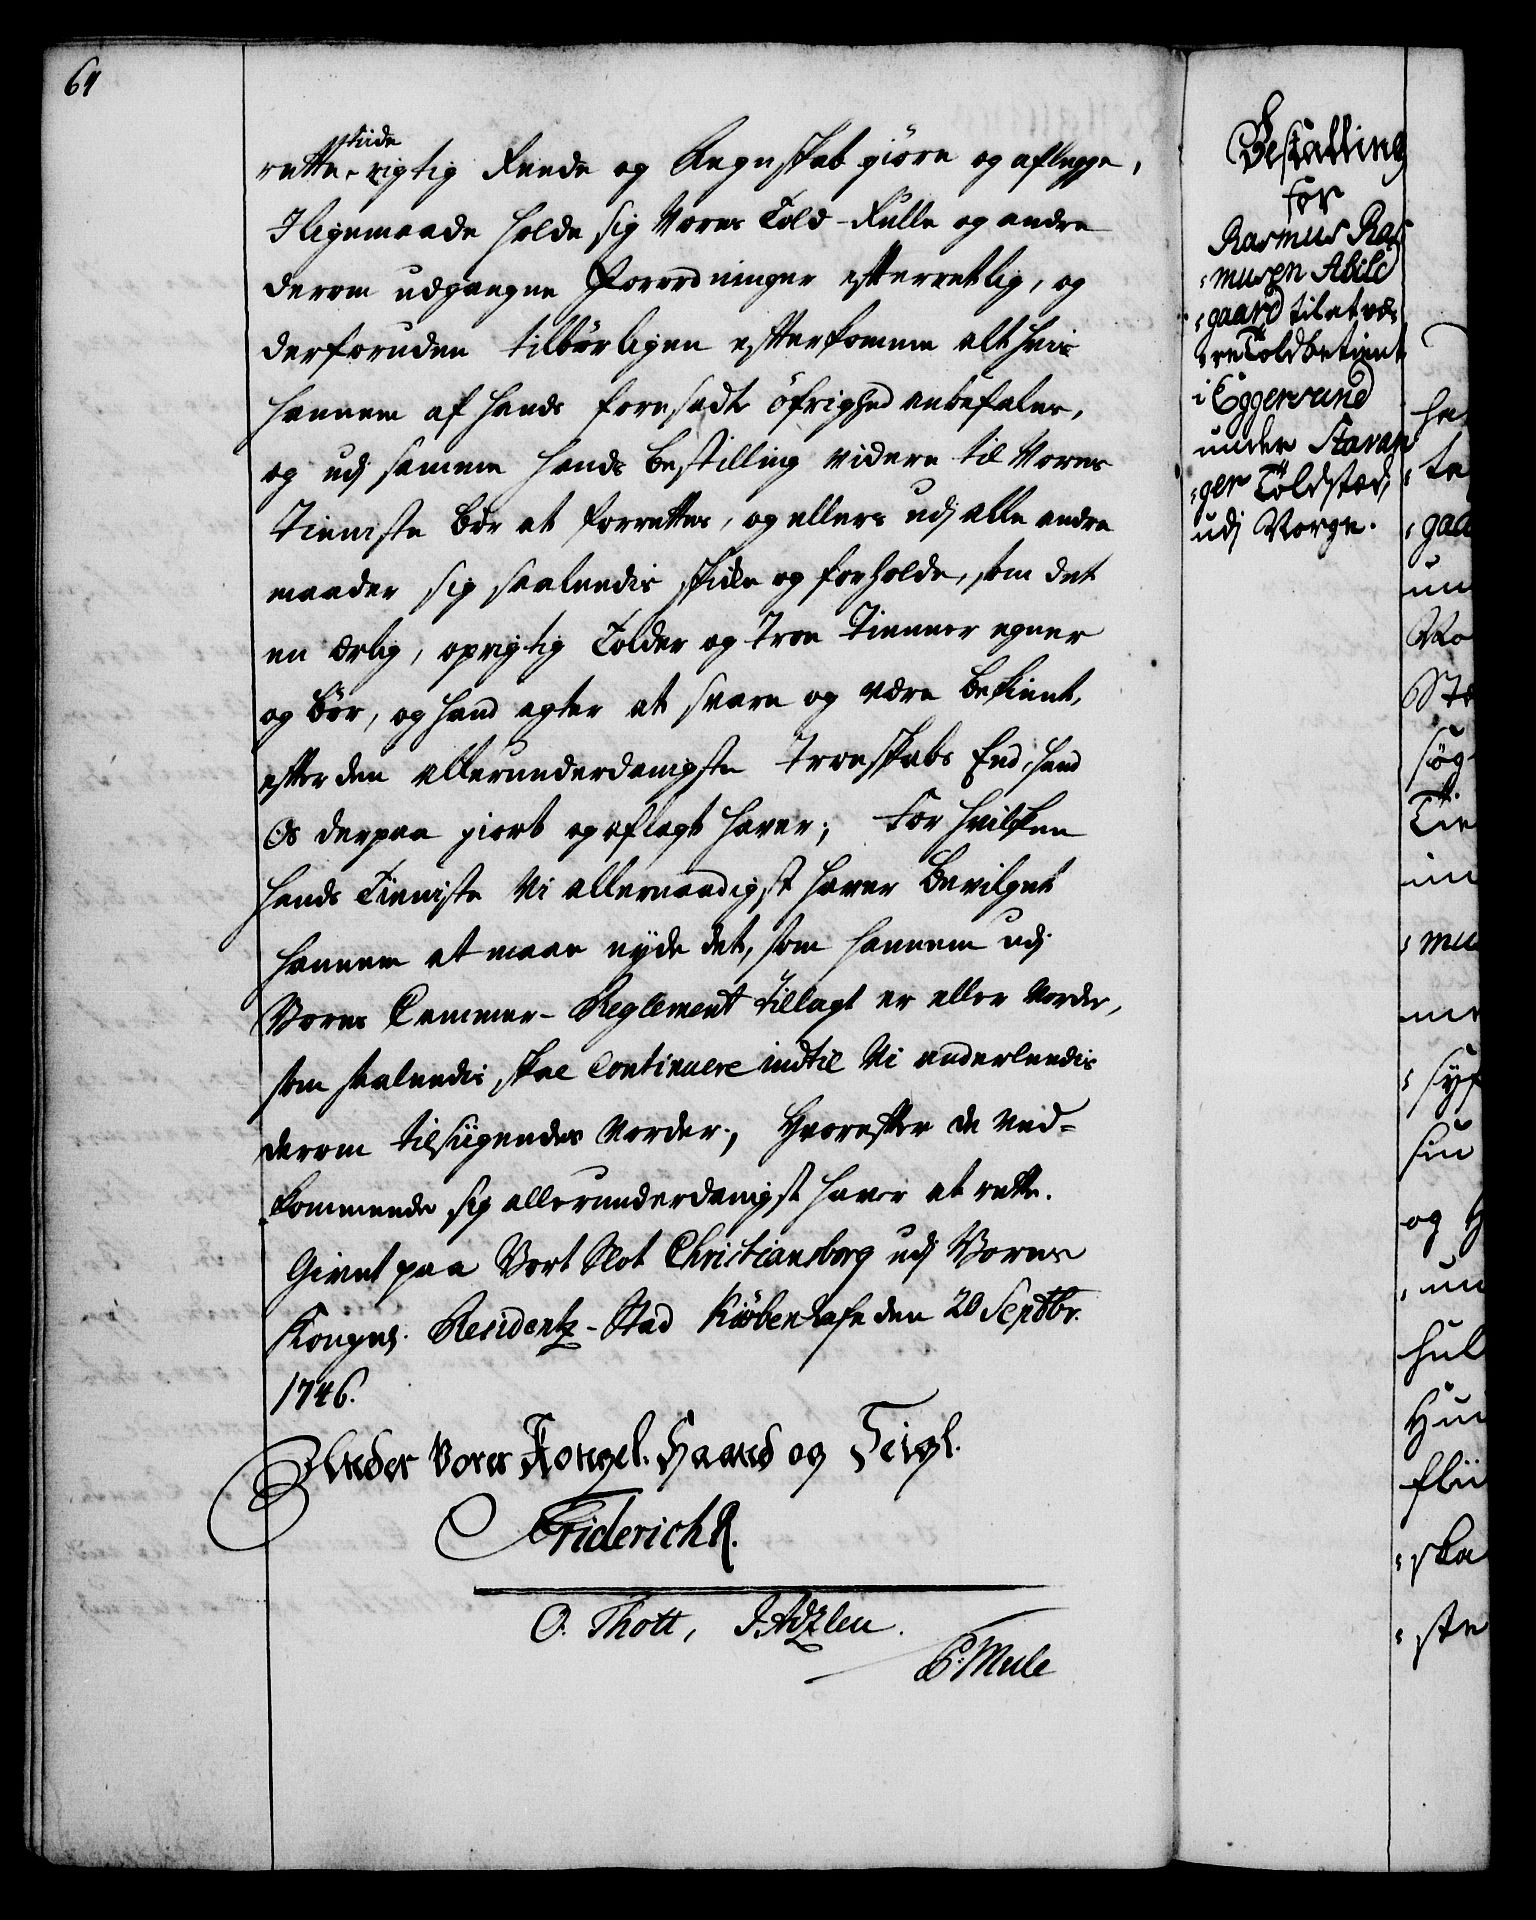 64
tiide
rette rigtig Reede og Regnskab giöre og aflegge,
Iligemaade holde sig Vores Told-Rulle og andre
derom udgangne Forordninger efterrettlig, og
derforuden tilbörligen efterkomme alt hvis
hannem af hands foresadte öfrighed anbefales,
og udj samme hands bestilling videre til Vores
Tieniste bör at forrettes, og ellers udj alle andre
maader sig saaledis skikke og forholde, som det
en ærlig, oprigtig Tolder og Troe Tienner egner
og bör, og hand agter at svare og være bekiendt,
efter den allerunderdanigste Troeskabs Eed, hand
Os derpaa giort og aflagt haver; For hvilken
hands Tieniste Vi allernaadigst haver bevilget
hannem at maae nyde det, som hannem udj
Vores Cammer-Reglement tillagt er eller vorder,
som saaledis skal Continuere indtil Vi anderleedis
derom tilsiigendes vorder; Hvorefter de ved=
kommende sig allerunderdanigst haver at rette.
Givet paa Vort Slot Christiansborg udj Vores
Kongel. Residentz-Stad Kiöbenhafn den 20 Septbr.
1746.
Under Vores Kongel. Haand og Seigl.
Friderich R.
O. Thott, J. Adzlen.
P: Mule
Bestalling
for
Rasmus Ras
:musen Abild
:gaard til at væ:
:re Toldbetient
i Eggersund
under Stavan
:ger Toldsted,
udj Norge.
ha
te
:gaa
un
Vo
Sta
söge
Tie
in
:mu
me
:sys
sin
og H
un
hul
Hui
flii
:ska
:ste